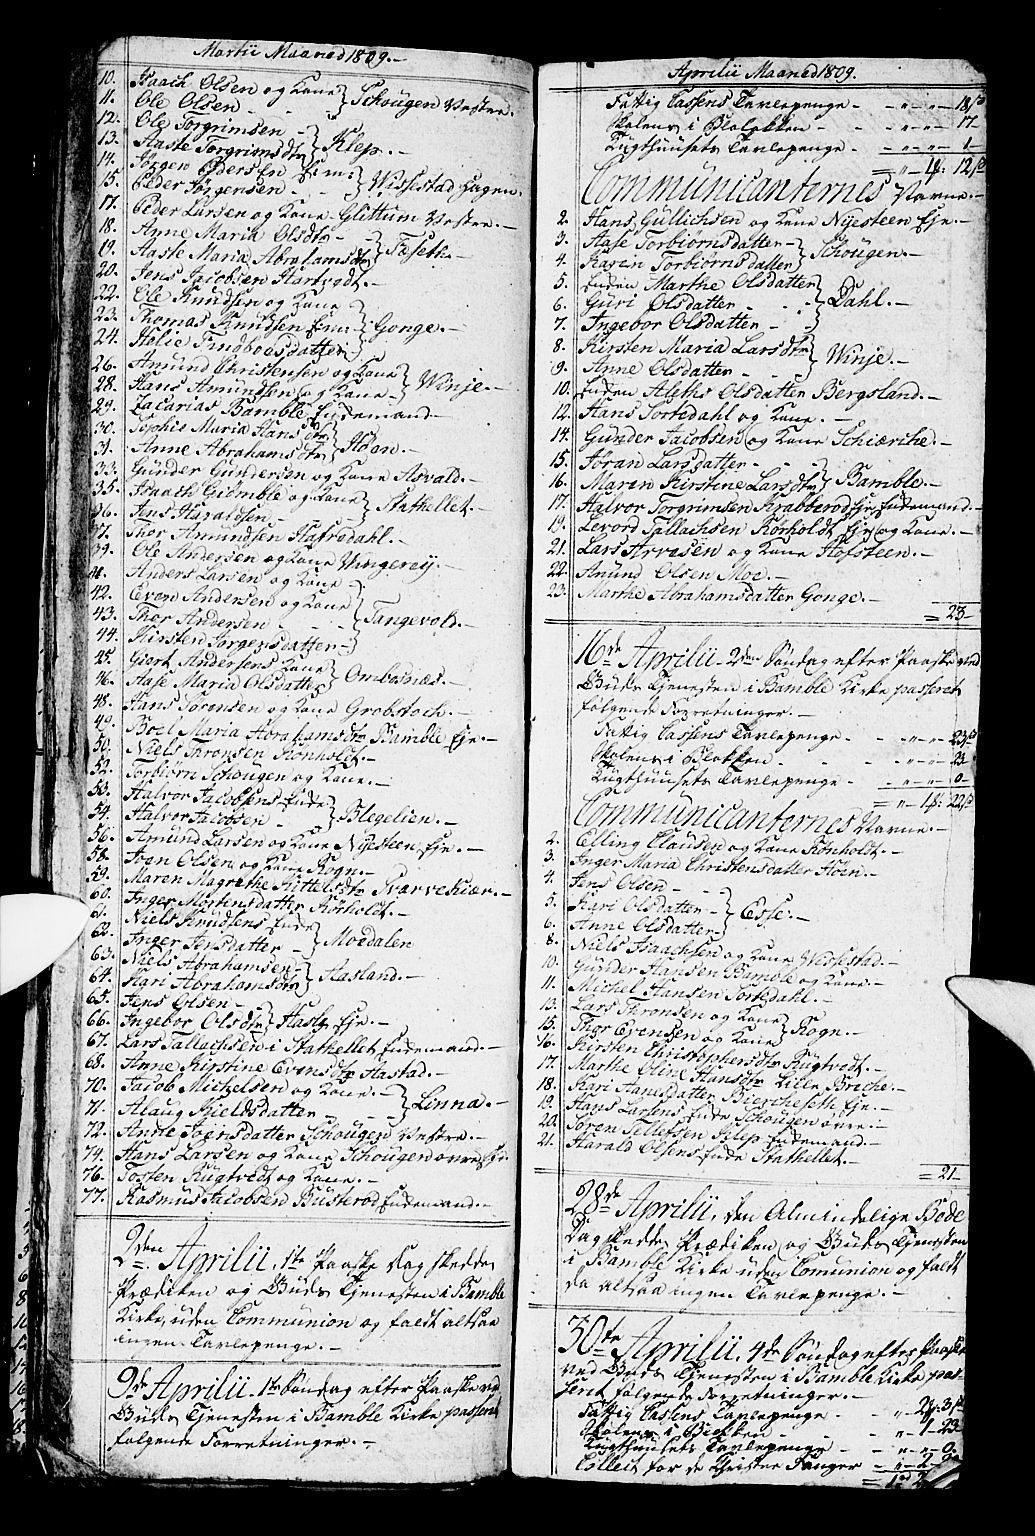 Martii Maaned 1809.-
10. Isaach Olsen og Kone
11. Ole Olsen - } Schougen Vestre.
12. Ole Torgrimsen -
13. Aaste Torgrimsdtr } Klep.-
14. Jørgen Pedersen
15. Peder Jørgensen - } Wissestad Hagen.
17. Peder Larsen og Kone Glittum Vestre.-
18. Anne Maria Olsdtr -
19. Aaste Maria Abrahamsdtr } Foseth.-
20. Jens Jacobsen Hartvedt.-
22. Ole Knudsen og Kone
23. Thomas Knudsen
24. Helie Findboesdatter } Gonge.-
26. Amund Christensen og Kone
28. Hans Amundsen og Kone } Winje.-
29. Zacarias Bamble Enkemand.-
30. Sophie Maria Hans dtr
31. Anne Abrahams dtr } Høen.-
33. Gunder Gundersen og Kone Asvald.-
35. Isaach Grømble og Kone
36. Jens Haraldsen - } Stathellet.-
37. Thor Amundsen Hafredahl.-
39. Ole Andersen og Kone Wingereij.-
41. Anders Larsen og Kone
42. Even Andersen og Kone
43. Thor Andersen -
44. Kirsten Jørgensdatter - } Tangevold.-
45. Giert Andersens Kone
46. Aase Maria Olsdatter } Ombosnæs.-
48. Hans Sørensen og Kone Grobstoch.-
49. Boel Maria Abrahamsdtr Bamble Eje.-
50. Niels Thronsen Rønholdt.-
52. Torbiørn Schougen og Kone.-
53. Halvor Jacobsens Enke
54. Halvor Jacobsen - } Blegelien.-
56. Amund Larsen og Kone Nyesteen Eje.-
58. Iver Olsen og Kone Rogn.-
59. Maren Magrethe Kittelsdtr Tvarveskiær.-
60. Inger Mortensdatter Rørholdt.-
61. Niels Knudsens Enke
62. Inger Jensdatter - } Moedalen
63. Niels Abrahamsen -
64. Kari Abrahamsdtr } Aasland.-
65. Jens Olsen -
66. Ingebor Olsdtr } Hasle Eje.-
67. Lars Tallachsen i Stathellet Enkemand.-
68. Anne Kirstine Evensdtr Aastad.-
70. Jacob Michelsen og Kone.-
71. Alaug Kieldsdatter - } Linna.-
72. Anne Joensdatter Schougen Vestre.-
74. Hans Larsen og Kone Schougen øvre Eje
76. Tosten Rugtvedt og Kone.-
77. Rasmus Jacobsen Busterød Enkemand.-
2den Aprilii. 1te Paaske Dag skedde
Prædiken og Guds Tjenesten i Bamble
Kirke, uden Communion og faldt altsaa
ingen Tavlepenge.-
9de Aprilii. 1te Søndag efter Paaske ved
Guds Tjenesten i Bamble Kirke passeret
følgende Forretninger.-
Aprilii Maaned 1809.
Fattig Cassens Tavlepenge - " " 18 ß
Skolens i Blokken - " " 17-
Tugthuusets Tavlepenge - " " 1-
= " 1 : 12 ß
Communicanternes Navne.-
2. Hans Gullichsen og Kone Nyesteen Eje.-
3. Aase Torbiørnsdatter -
4. Karin Torbiørnsdatter } Schougen.-
5. Enken Marthe Olsdatter
6. Guri Olsdatter -
7. Ingebor Olsdatter - } Dahl.-
8. Kirsten Maria Larsdtr
9. Anne Olsdatter - } Winje.-
10. Enken Aleths Olsdatter Bergsland.-
12. Hans Tortedahl og Kone.-
14. Gunder Jacobsen og Kone Schierche.-
15. Jøran Larsdatter -
16. Maren Kirstine Larsdtr } Bamble.-
17. Halvor Torgrimsen Krabberød Eje Enkemand.-
19. Levord Tallachsen Rørholdt Eje og Kone.-
21. Lars Arvesen og Kone Hofsteen.-
22. Amund Olsen Moe.-
23. Marthe Abrahamsdatter Gonge.-
= 23-
16de Aprilii. 2den Søndag efter Paaske ved
Guds Tjenesten i Bamble Kirke passeret
følgende Forretninger.-
Fattig Cassens Tavlepenge - " " 23 ß
Skolens i Blokken - " " 23
Tugthuusets Tavlepenge " " 0-
= " 1 : 22 ß
Communicanternes Navne.-
2. Elling Clausen og Kone Rønholdt.-
3. Inger Maria Christensdatter Høen.-
4. Jens Olsen -
5. Kari Olsdatter -
6. Anne Olsdatter } Esse.-
8. Niels Isaachsen og Kone Wissestad.-
10. Gunder Hansen Bamble og Kone.-
11. Michel Hansen Tortedahl.-
13. Lars Thronsen og Kone
15. Thor Evensen og Kone } Rogn.-
16. Kirsten Christophersdtr Rugtvedt.-
17. Marthe Oline Hansdtr Lille Breche.-
18. Kari Hansdatter Biercheseth Eje.-
19. Hans Larsens Enke Schougen øvre.-
20. Søren Tellefsen Klep Enkemand.-
21. Harald Olsens Enke Stathellet.-
= 21-
28de Aprilii, den Almindelige Bede
Dag skedde Prædiken og Guds Tjenesten
i Bamble Kirke uden Comunion og faldt
da altsaa ingen Tavlepenge.-
30te Aprilii. 4de Søndag efter Paaske
ved Guds Tjenesten i Bamble Kirke pas-
serit følgende Forretninger.-
Fattig Cassens Tavlepenge - " 2 : 3 ß
Skolens i Blokken - " 1-23
Tugthuusets Tavlepenge - " " 0.
Collect for de Christne Fanger - " 2